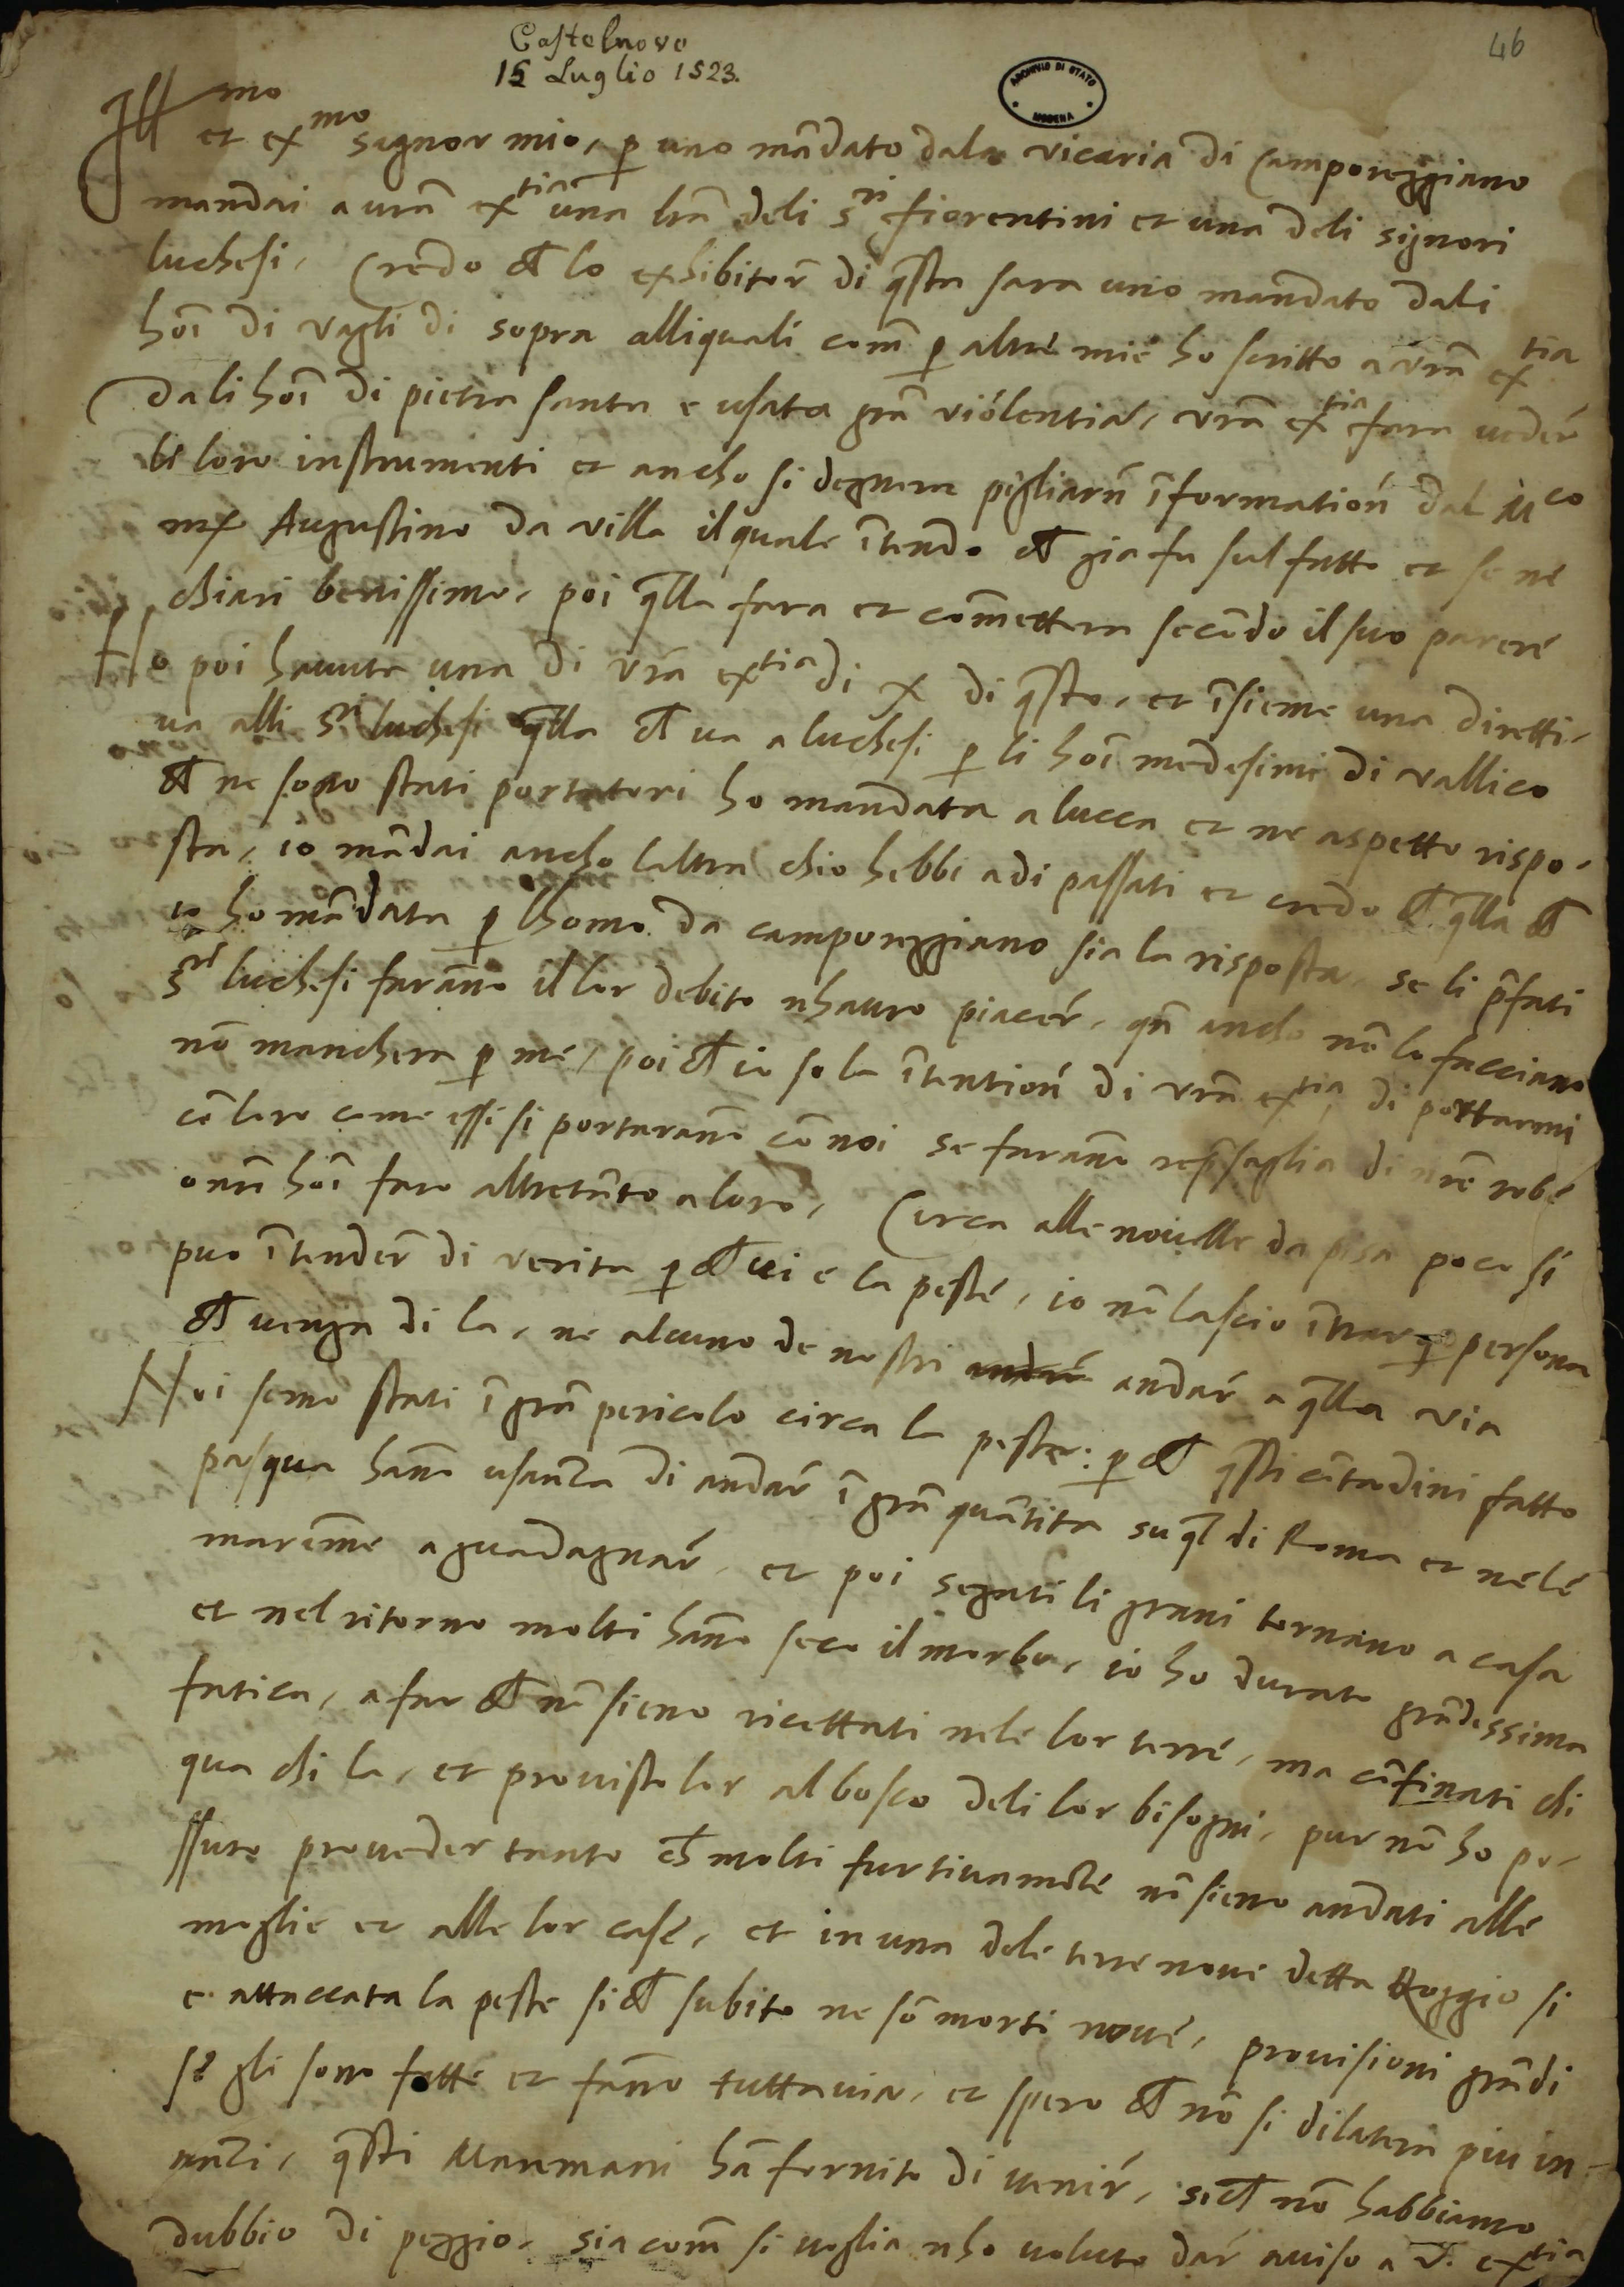 Castelnovo
15 Luglio 1523.
46
ARCHIVIO DI STATO
MODENA
Ill.mo et ex.mo signor mio, p uno mādato dala vicaria di Camporeggiano
mandai a vrā ex.tia una lrā deli s.ri fiorentini et una deli signori
luchesi, Credo ch lo exhibitor di q̄sta sara uno mandato dali
hoī di vagli di sopra alliquali com̄ p altre mie ho scritto a vrā ex.tia
Dali hoī di pietra santa e usata grā violentia, vrā ex.tia fara veder
li loro instrumenti et ancho si degnera pigliarn̄ īformation̄ dal M.co
m͞ Augustino da villa ilquale ītendo ch gia fu sul fatto et se ne
chiari benissimo, poi q̄lla fara et cōmettera secōdo il suo parere
Ho poi havuta una di vrā ex.tia di x di q̄sto, et īsieme una diretti-
va alli s.ri luchesi q̄lla ch va a luchesi p li hoī medesimi di vallico
ch ne sono stati portatori ho mandata a lucca et ne aspetto rispo-
sta, io mādai ancho laltra chio hebbi adi passati et credo ch q̄lla ch
io ho mādata p lhomo da camporeggiano sia la risposta, se li p̄fati
s.ri luchesi farāno il lor debito nhauro piacer, qn̄ ancho nō lo facciano
nō manchera p me, poi ch io so la ītention̄ di vrā ex.tia, di portarmi
cō loro come essi si portarāno cō noi se farāno rep̄saglia di nrē robe
o nrī hoī faro altretāto a loro, Circa alle novelle da pisa poco si
puo ītender di verita p ch vi e la peste, io nō lascio ītrar q̄ persona
ch venga di la, ne alcuno de nostri andar a q̄lla via
Noi semo stati ī grā pericolo circa la peste: p ch q̄sti cōtadini fatto
pasqua hāno usanza di andar ī grā quātita su q̄l di Roma et nele
maremme a guadagnar, et poi segati li grani tornano a casa
et nel ritorno molti hāno seco il morbo, io ho durato grādissima
fatica, a far ch nō sieno ricettati nele lor terre, ma cōfinati chi
qua chi la, et provisto lor al bosco deli lor bisogni, pur nō ho po-
ssuto proveder tanto ch molti furtivamēte nō sieno andati alle
moglie et alle lor case, et in una dele terre nove detta Roggio si
e attaccata la peste si ch subito ne sō morti nove, provisioni grādi
se gli sono fatte et fāno tuttavia, et spero ch nō si dilatera piu in-
nāzi, q̄sti Maremani hā fornito di venir, si ch nō habbiamo
dubbio di peggio, sia com̄ si voglia nho voluto dar aviso a v. ex.tia